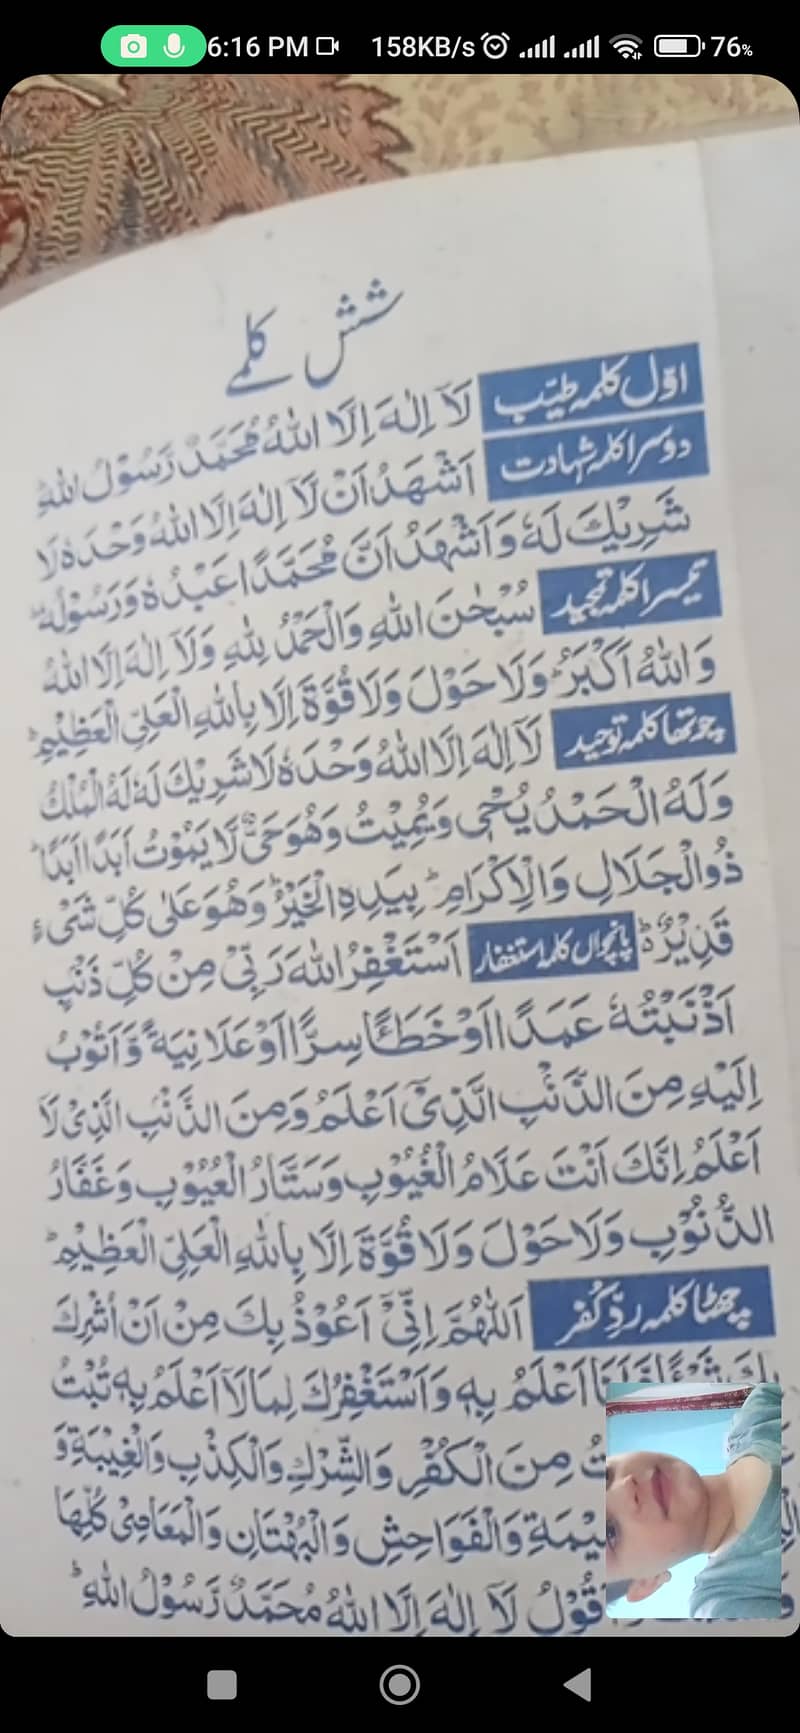 6:16 PM 158KB/s 76%
شش کلمے
اوّل کلمہ طیّب لَآ اِلٰهَ اِلَّا اللّٰهُ مُحَمَّدٌ رَّسُوْلُ اللّٰهِ
دوسرا کلمہ شہادت اَشْهَدُ اَنْ لَّآ اِلٰهَ اِلَّا اللّٰهُ وَحْدَهٗ لَا
شَرِيْكَ لَهٗ وَاَشْهَدُ اَنَّ مُحَمَّدًا عَبْدُهٗ وَرَسُوْلُهٗ
تیسرا کلمہ تمجید سُبْحٰنَ اللّٰهِ وَالْحَمْدُ لِلّٰهِ وَلَآ اِلٰهَ اِلَّا اللّٰهُ
وَاللّٰهُ اَكْبَرُ وَلَا حَوْلَ وَلَا قُوَّةَ اِلَّا بِاللّٰهِ الْعَلِىِّ الْعَظِيْمِ
چوتھا کلمہ توحید لَآ اِلٰهَ اِلَّا اللّٰهُ وَحْدَهٗ لَا شَرِيْكَ لَهٗ لَهُ الْمُلْكُ
وَلَهُ الْحَمْدُ يُحْىٖ وَيُمِيْتُ وَهُوَ حَىٌّ لَّا يَمُوْتُ اَبَدًا اَبَدًا
ذُوالْجَلَالِ وَالْاِكْرَامِ بِيَدِهِ الْخَيْرُ وَهُوَ عَلٰى كُلِّ شَىْءٍ
قَدِيْرٌ پانچواں کلمہ استغفار اَسْتَغْفِرُ اللّٰهَ رَبِّىْ مِنْ كُلِّ ذَنْۢبٍ
اَذْنَبْتُهٗ عَمَدًا اَوْ خَطَـًٔا سِرًّا اَوْ عَلَانِيَةً وَّاَتُوْبُ
اِلَيْهِ مِنَ الذَّنْۢبِ الَّذِىْٓ اَعْلَمُ وَمِنَ الذَّنْۢبِ الَّذِىْ لَآ
اَعْلَمُ اِنَّكَ اَنْتَ عَلَّامُ الْغُيُوْبِ وَسَتَّارُ الْعُيُوْبِ وَغَفَّارُ
الذُّنُوْبِ وَلَا حَوْلَ وَلَا قُوَّةَ اِلَّا بِاللّٰهِ الْعَلِىِّ الْعَظِيْمِ
چھٹا کلمہ ردِّ کُفر اَللّٰهُمَّ اِنِّىْٓ اَعُوْذُ بِكَ مِنْ اَنْ اُشْرِكَ
اَعْلَمُ بِهٖ وَاَسْتَغْفِرُكَ لِمَا لَآ اَعْلَمُ بِهٖ تُبْتُ
مِنَ الْكُفْرِ وَالشِّرْكِ وَالْكِذْبِ وَالْغِيْبَةِ وَ
وَالْفَوَاحِشِ وَالْبُهْتَانِ وَالْمَعَاصِىْ كُلِّهَا
لَآ اِلٰهَ اِلَّا اللّٰهُ مُحَمَّدٌ رَّسُوْلُ اللّٰهِ